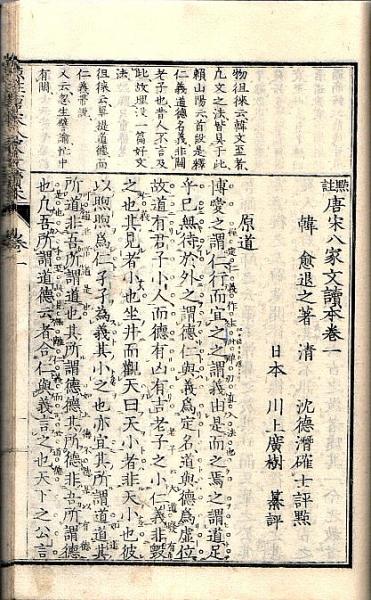 物徂徠云韓文至者
凡文之法皆具于此
賴山陽云首段是釋
仁義道德名義非關
老子也昔人不言及
此故埋没一篇好文
法
徂徠云單提道德而
仁義帶説
又云忽生譬喩忙中
有閑
點註 唐宋八家文讀本卷一
韓 愈退之著 清 沈德潛確士評點
日本 川上廣樹 纂評
原道
博愛之謂仁行而宜之之謂義由是而之焉之謂道足
乎已無待於外之謂德仁與義爲定名道與德爲虛位
故道有君子小人而德有凶有吉老子之小仁義非毀
之也其見者小也坐井而觀天曰天小者非天小也彼
以煦煦爲仁孑孑爲義其小之也亦宜其所謂道道其
所道非吾所謂道也其所謂德德其所德非吾所謂德
也凡吾所謂道德云者合仁與義言之也天下之公言